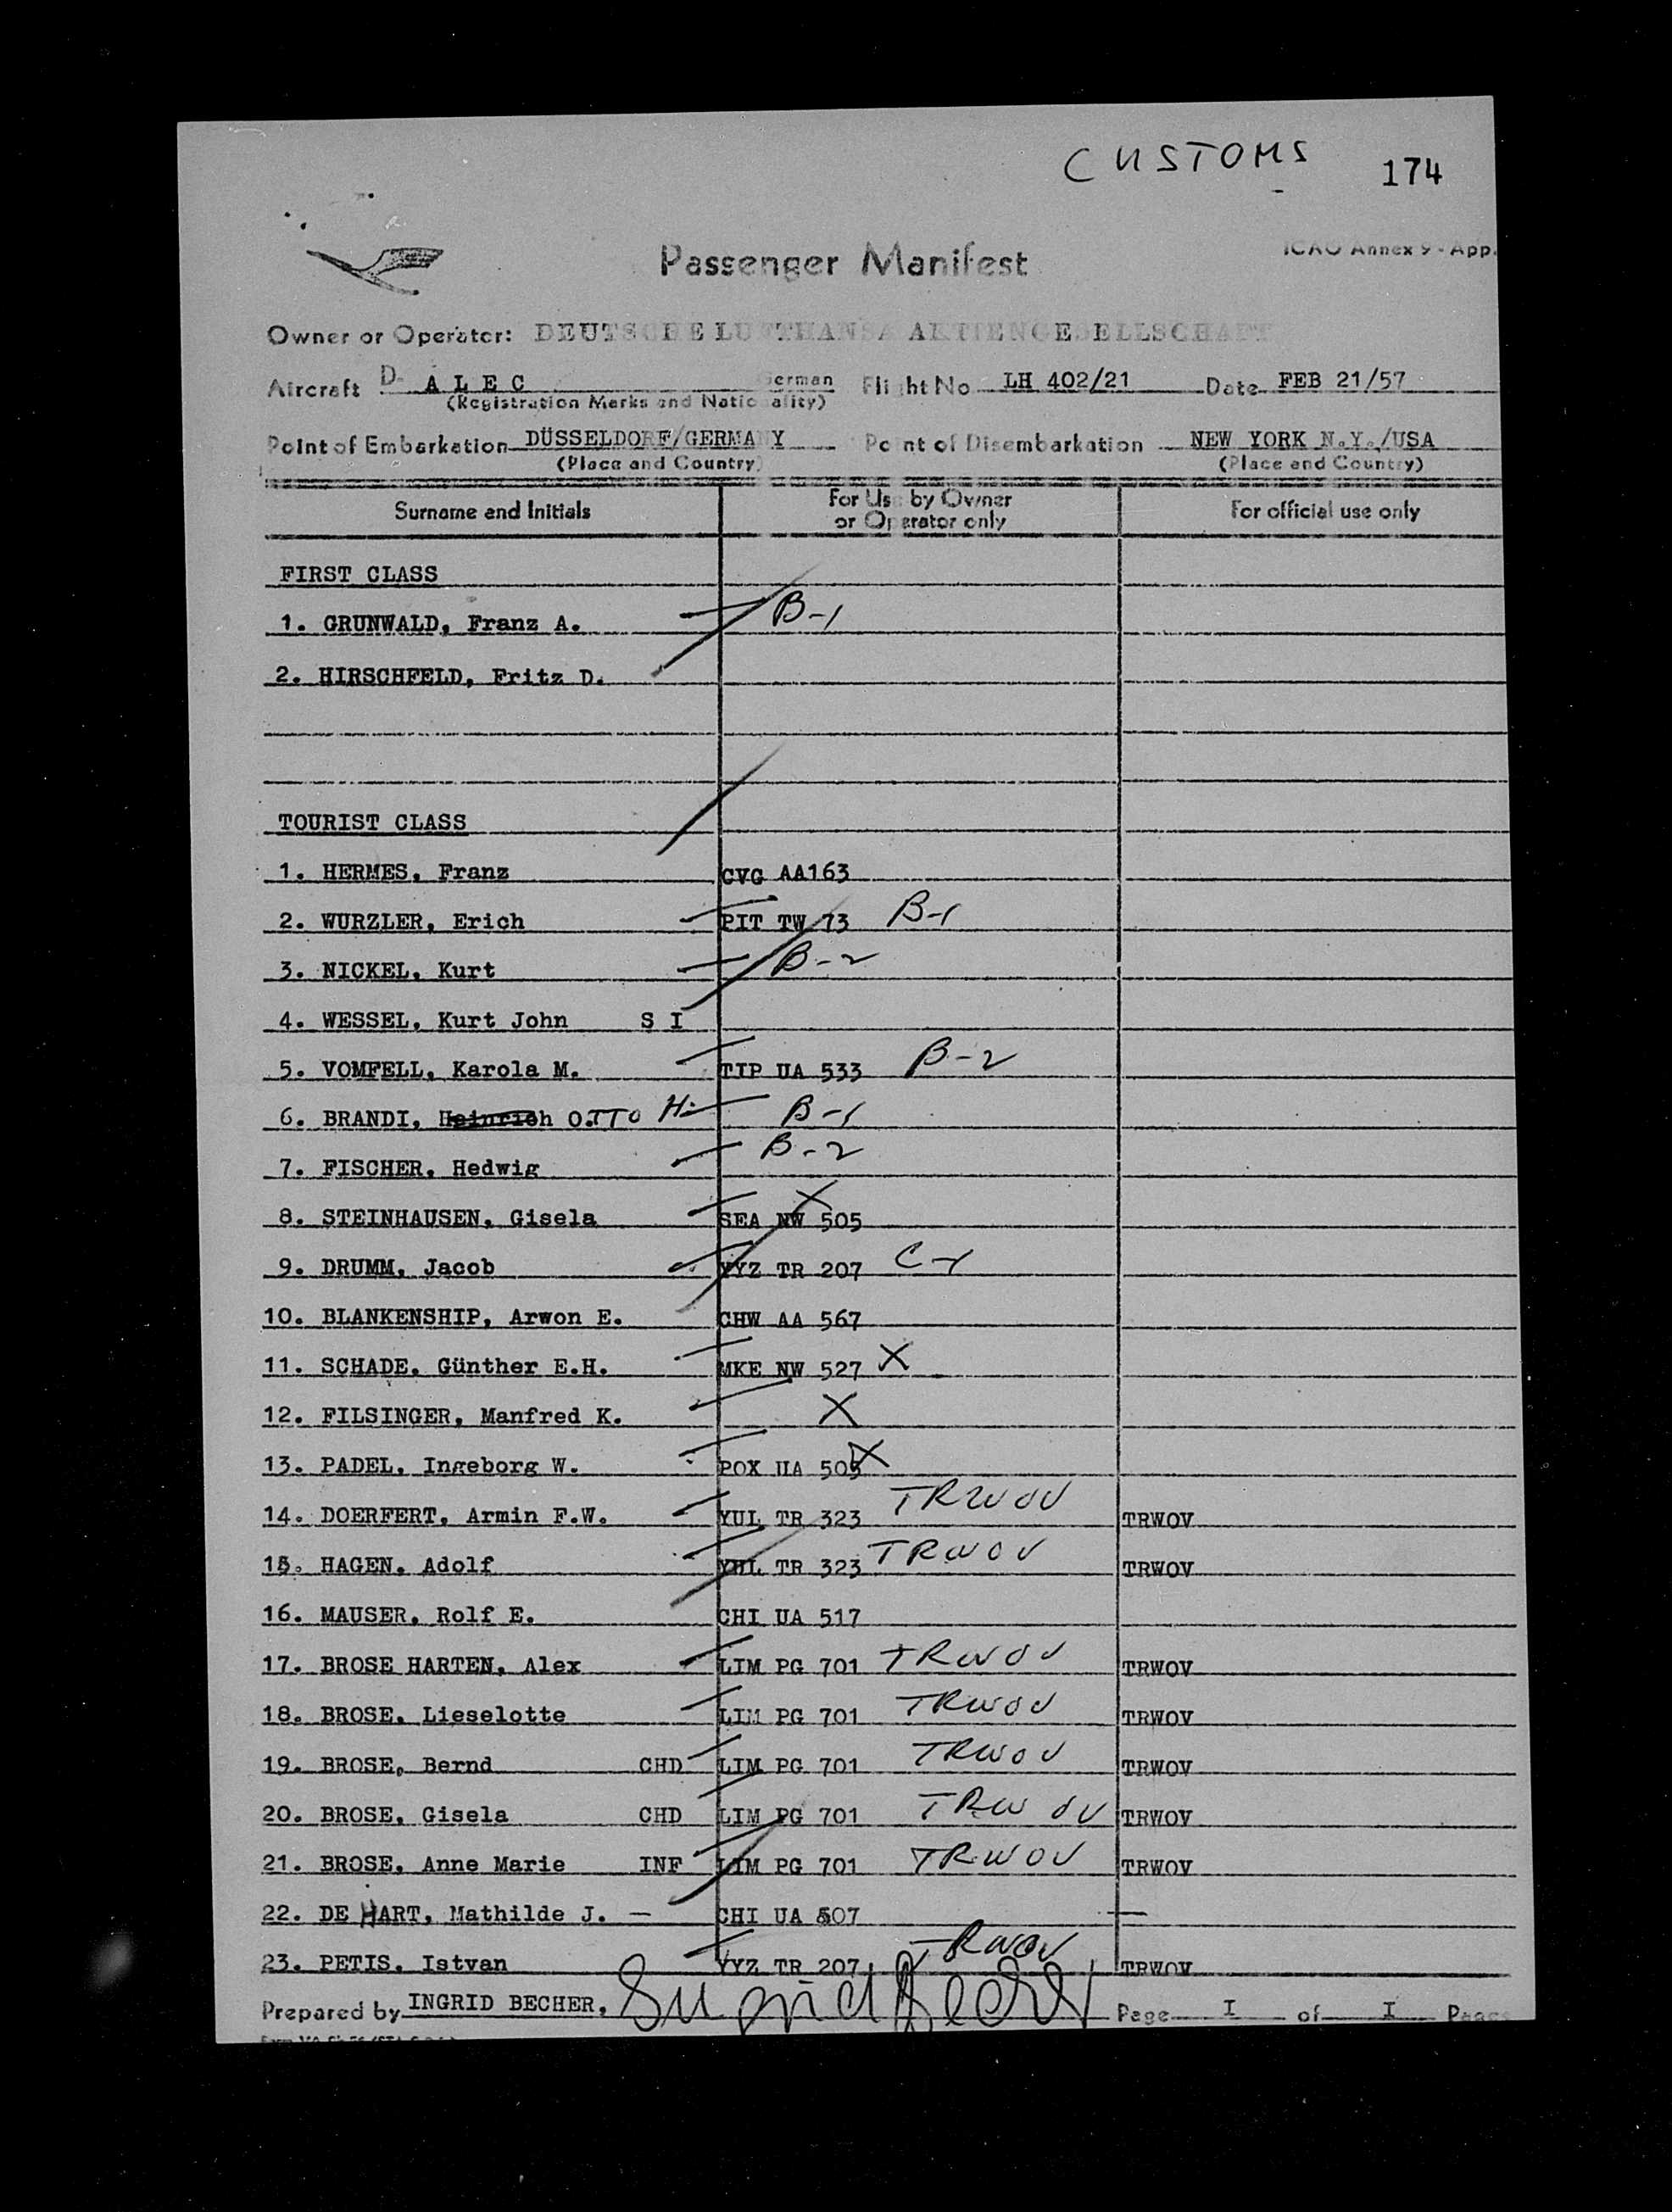 CUSTOMS 174
Passenger Manifest
ICAO Annex 9 - App.
Owner or Operator: DEUTSCHE LUFTHANSA AKTIENGESELLSCHAFT
Aircraft D- ALEC German Flight No LH 402/21 Date FEB 21/57
(Registration Marks and Nationality)
Point of Embarkation DÜSSELDORF/GERMANY Point of Disembarkation NEW YORK N.Y./USA
(Place and Country) (Place and Country)
Surname and Initials For Use by Owner or Operator only For official use only
FIRST CLASS
1. GRUNWALD, Franz A. B-1
2. HIRSCHFELD, Fritz D.
TOURIST CLASS
1. HERMES, Franz CVG AA163
2. WURZLER, Erich PIT TW 73 B-1
3. NICKEL, Kurt B-2
4. WESSEL, Kurt John S I
5. VOMFELL, Karola M. TIP UA 533 B-2
6. BRANDI, Heinrich O.TTO H. B-1
7. FISCHER, Hedwig B-2
8. STEINHAUSEN, Gisela SEA NW 505 X
9. DRUMM, Jacob YYZ TR 207 C-1
10. BLANKENSHIP, Arwon E. CHW AA 567
11. SCHADE, Günther E.H. MKE NW 527 X
12. FILSINGER, Manfred K. X
13. PADEL, Ingeborg W. POX UA 505 X
14. DOERFERT, Armin F.W. YUL TR 323 TRWOV TRWOV
15. HAGEN, Adolf YUL TR 323 TRWOV TRWOV
16. MAUSER, Rolf E. CHI UA 517
17. BROSE HARTEN, Alex LIM PG 701 TRWOV TRWOV
18. BROSE, Lieselotte LIM PG 701 TRWOV TRWOV
19. BROSE, Bernd CHD LIM PG 701 TRWOV TRWOV
20. BROSE, Gisela CHD LIM PG 701 TRWOV TRWOV
21. BROSE, Anne Marie INF LIM PG 701 TRWOV TRWOV
22. DE HART, Mathilde J. — CHI UA 507 —
23. PETIS, Istvan YYZ TR 207 TRWOV TRWOV
Prepared by INGRID BECHER, Ingrid Becher Page I of I Pages